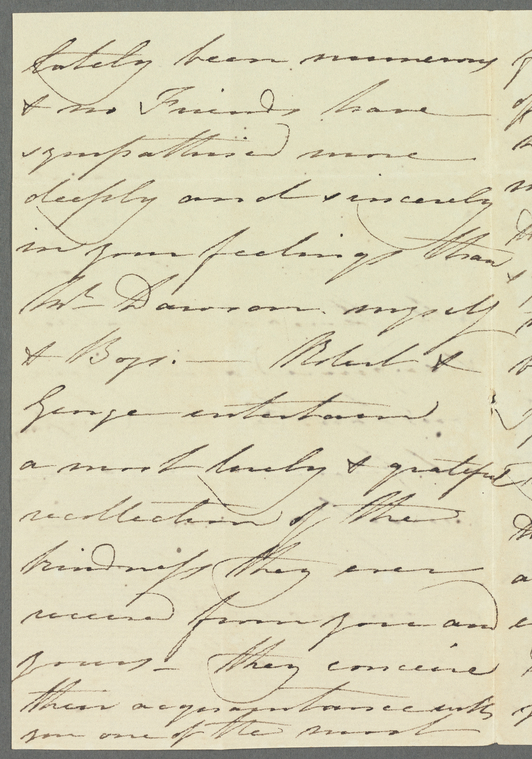 lately been numerous
& no Friends have
sympathised more
deeply and sincerely
in your feelings than
Mr Dawson. myself
& Boys. — Robert &
George entertained
a most lively & grateful
recollection of the
kindness they ever
received from you and
yours — they conceive
their acquaintance with
you one of the most